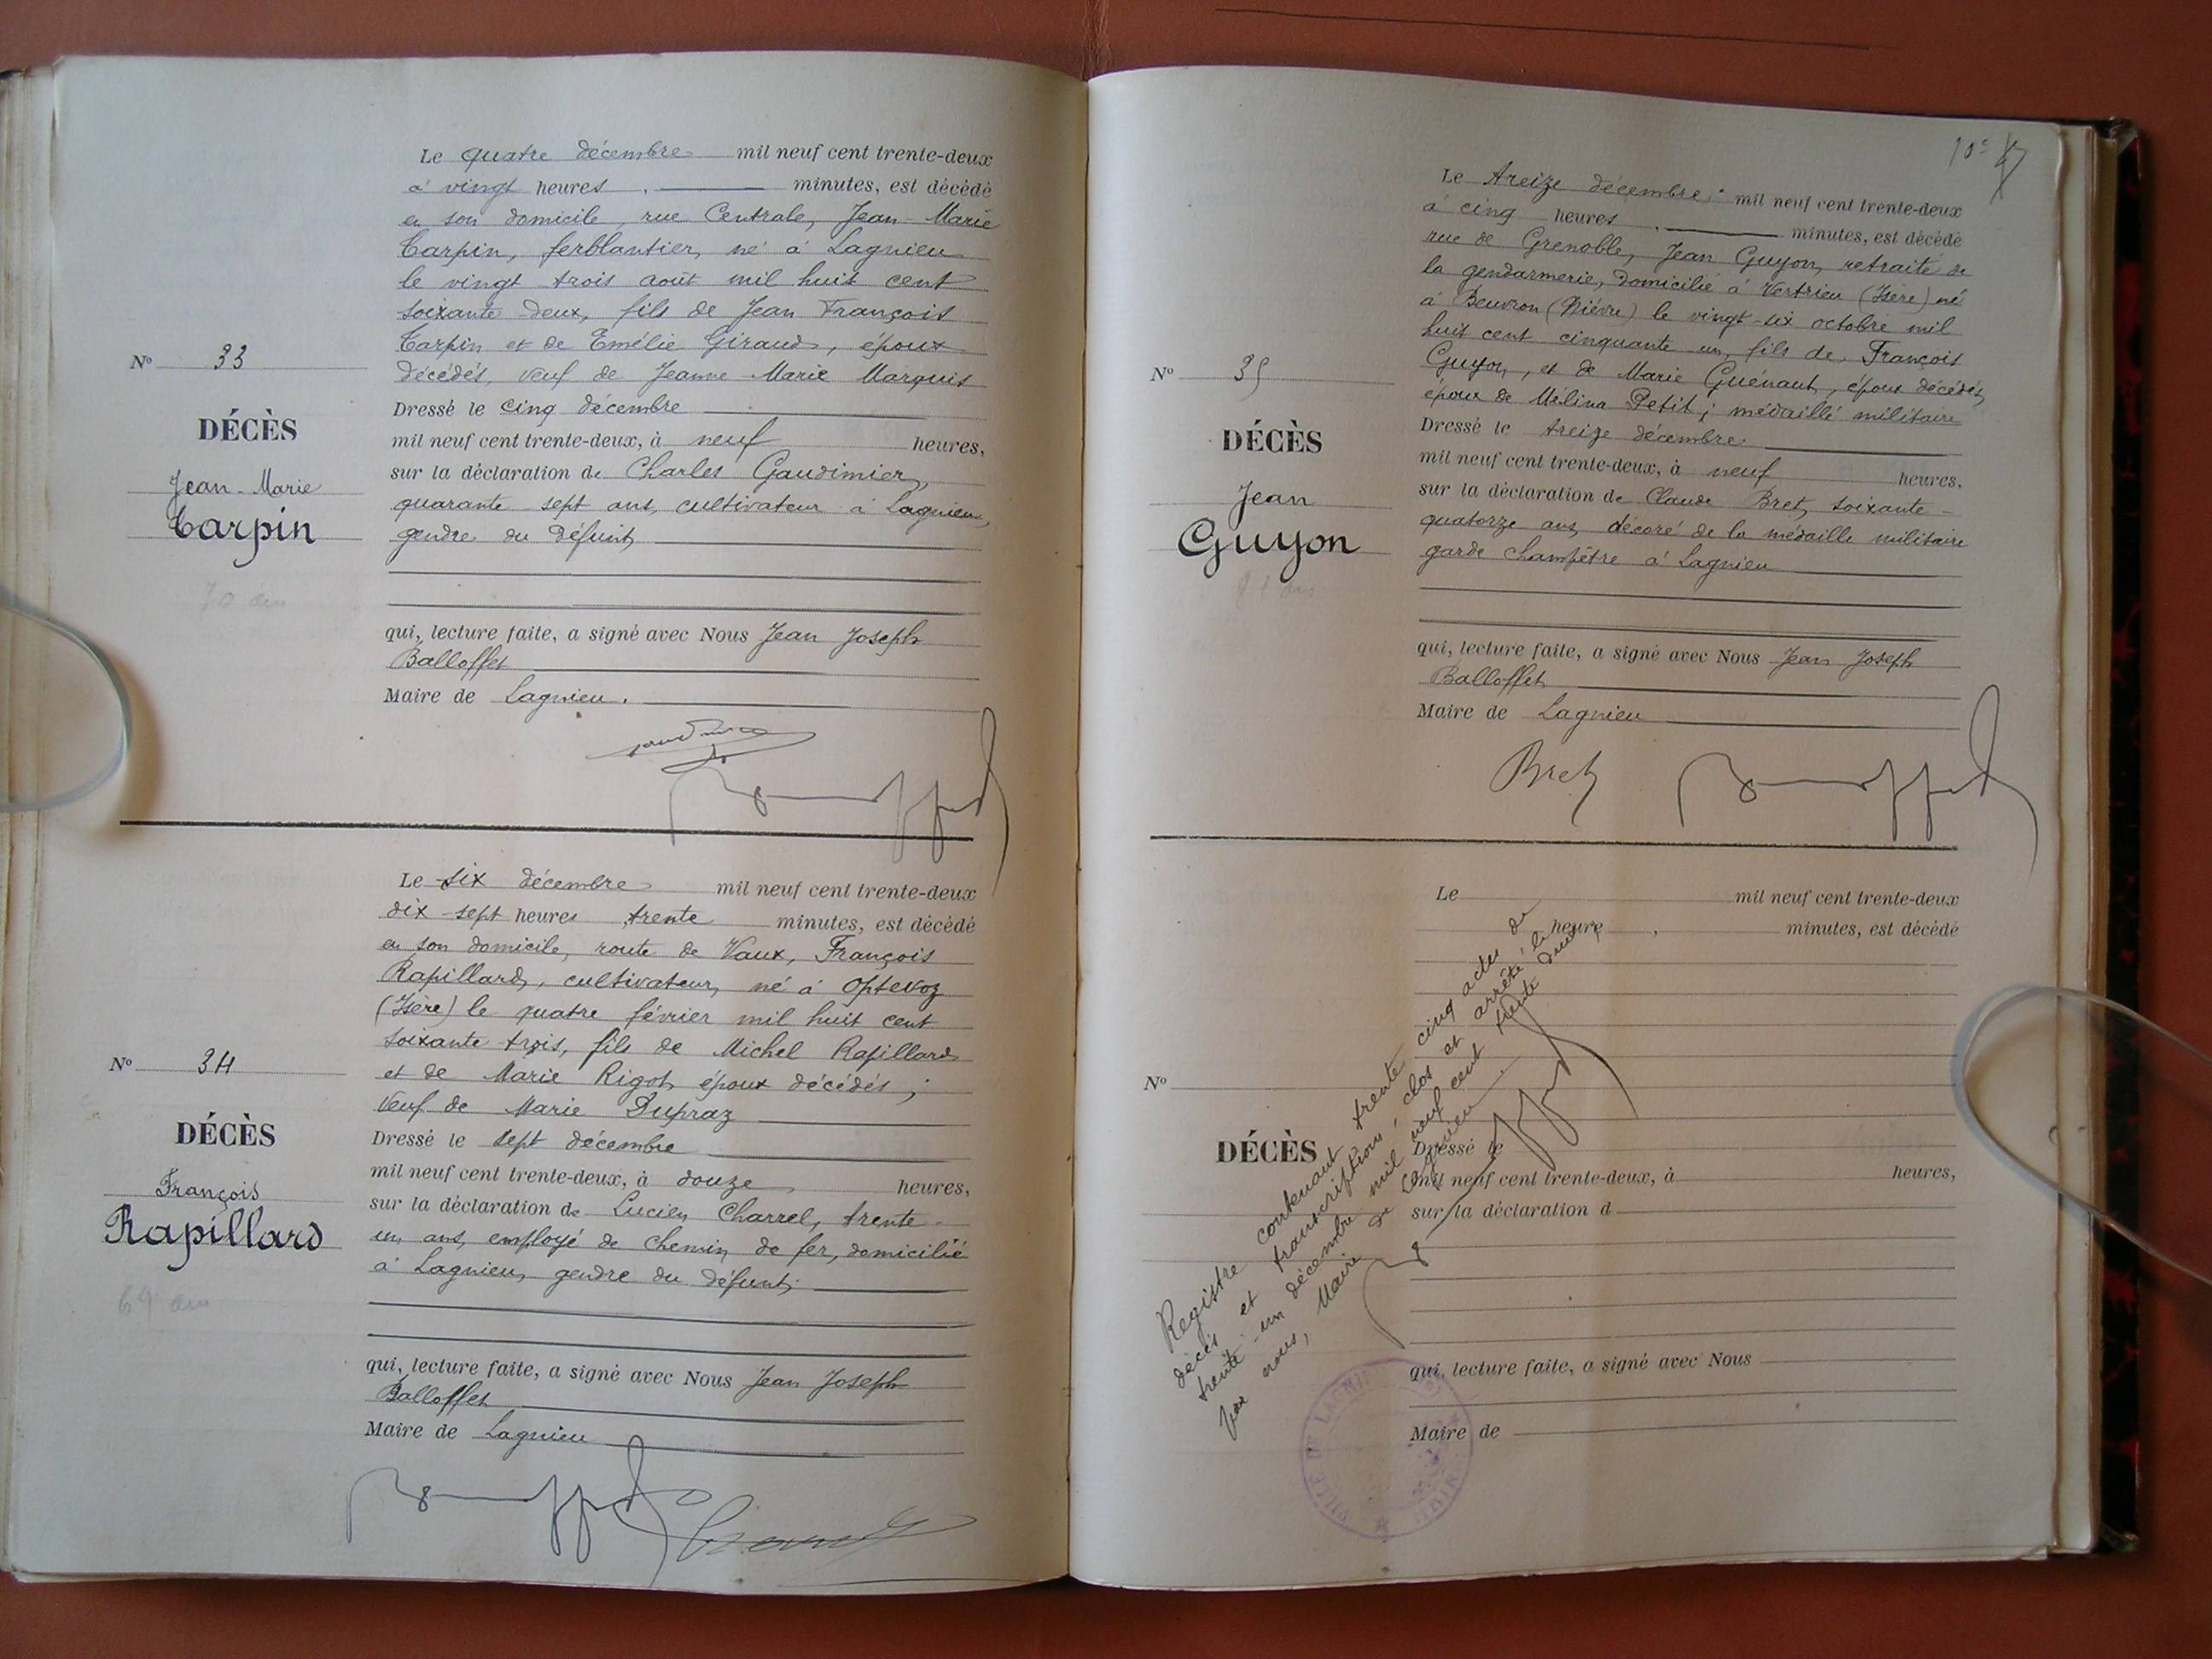 Le quatre décembre mil neuf cent trente-deux
à vingt heures, minutes, est décédé
en son domicile, rue Centrale, Jean-Marie
Carpin, ferblantier, né à Lagnieu
le vingt trois août mil huit cent
soixante deux, fils de Jean François
Carpin et de Emélie Giraud, époux
décédés, veuf de Jeanne Marie Marquis
Dressé le cinq décembre
mil neuf cent trente-deux, à neuf heures,
sur la déclaration de Charles Gaudimier,
quarante sept ans, cultivateur à Lagnieu,
gendre du défunt,
qui, lecture faite, a signé avec Nous Jean Joseph
Balloffet
Maire de Lagnieu.
N° 33
DÉCÈS
Jean-Marie
Carpin
70 ans
Le six décembre mil neuf cent trente-deux
dix-sept heures trente minutes, est décédé
en son domicile, route de Vaux, François
Rapillard, cultivateur, né à Optevoz
(Isère) le quatre février mil huit cent
soixante trois, fils de Michel Rapillard
et de Marie Rigot, époux décédés ;
veuf de Marie Dupraz
Dressé le sept décembre
mil neuf cent trente-deux, à douze heures,
sur la déclaration de Lucien Charrel, trente-
un ans, employé de chemin de fer, domicilié
à Lagnieu, gendre du défunt,
qui, lecture faite, a signé avec Nous Jean Joseph
Balloffet
Maire de Lagnieu
N° 34
DÉCÈS
François
Rapillard
69 ans
Le treize décembre mil neuf cent trente-deux
à cinq heures, minutes, est décédé
rue de Grenoble, Jean Guyon, retraité de
la gendarmerie, domicilié à Vertrieu (Isère) né
à Beuvron (Nièvre) le vingt-six octobre mil
huit cent cinquante un, fils de François
Guyon, et de Marie Guénaut, époux décédés,
époux de Mélina Petit ; médaillé militaire
Dressé le treize décembre
mil neuf cent trente-deux, à neuf heures,
sur la déclaration de Claude Bret, soixante-
quatorze ans, décoré de la médaille militaire
garde champêtre à Lagnieu
qui, lecture faite, a signé avec Nous Jean Joseph
Balloffet
Maire de Lagnieu
Bret
N° 35
DÉCÈS
Jean
Guyon
81 ans
Le mil neuf cent trente-deux
heure, minutes, est décédé
N°
DÉCÈS
Dressé le
mil neuf cent trente-deux, à heures,
sur la déclaration d
qui, lecture faite, a signé avec Nous
Maire de
Registre contenant trente cinq actes de
décès et transcription, clos et arrêté le
trente-un décembre mil neuf cent trente deux
par nous, Maire de Lagnieu
VILLE DE LAGNIEU